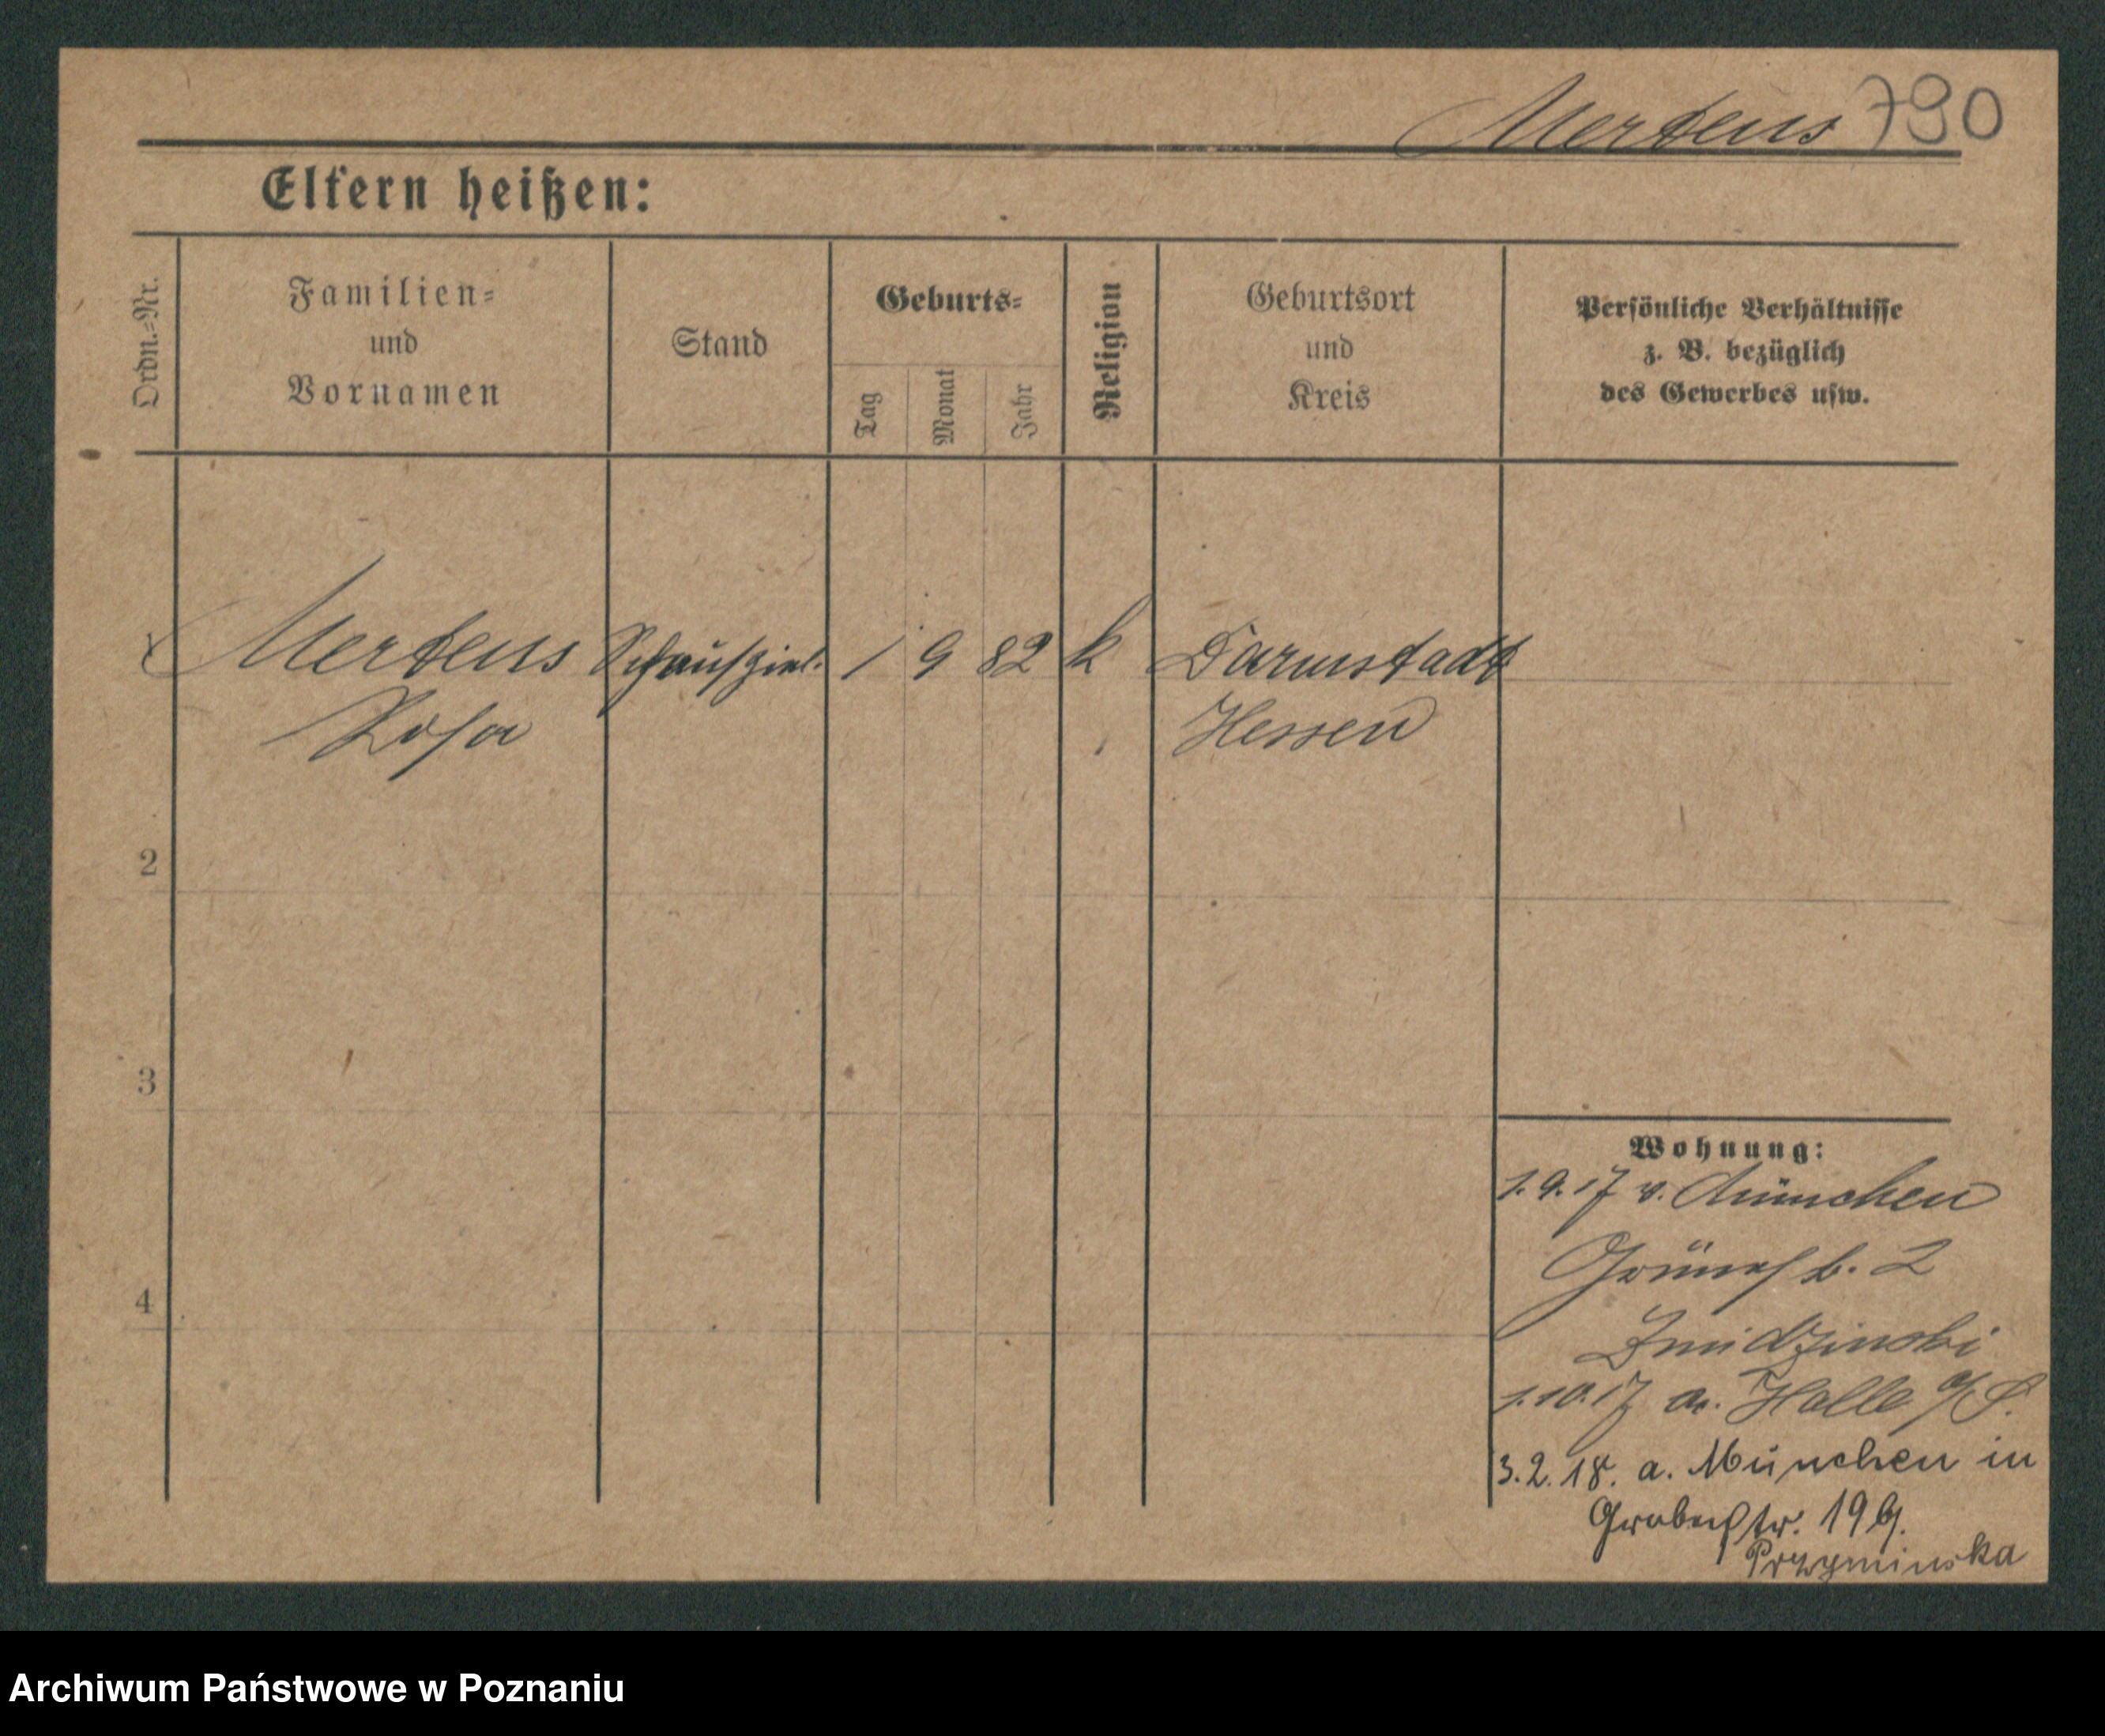 Mertens 790
Eltern heißen:
Ordn.=Nr.
Familien=
und
Vornamen
Stand
Geburts=
Tag
Monat
Jahr
Religion
Geburtsort
und
Kreis
Persönliche Verhältnisse
z. B. bezüglich
des Gewerbes usw.
1 Mertens Schauspiel. 1 9 82 k Darmstadt
Rosa Hessen
2
3
4
Wohnung:
1.9.17 v. München
b. 2
Zmidzinski
1.10.17 a. Halle a/S.
3.2.18. a. München in
Grabenstr. 19
Przyminska
Archiwum Państwowe w Poznaniu